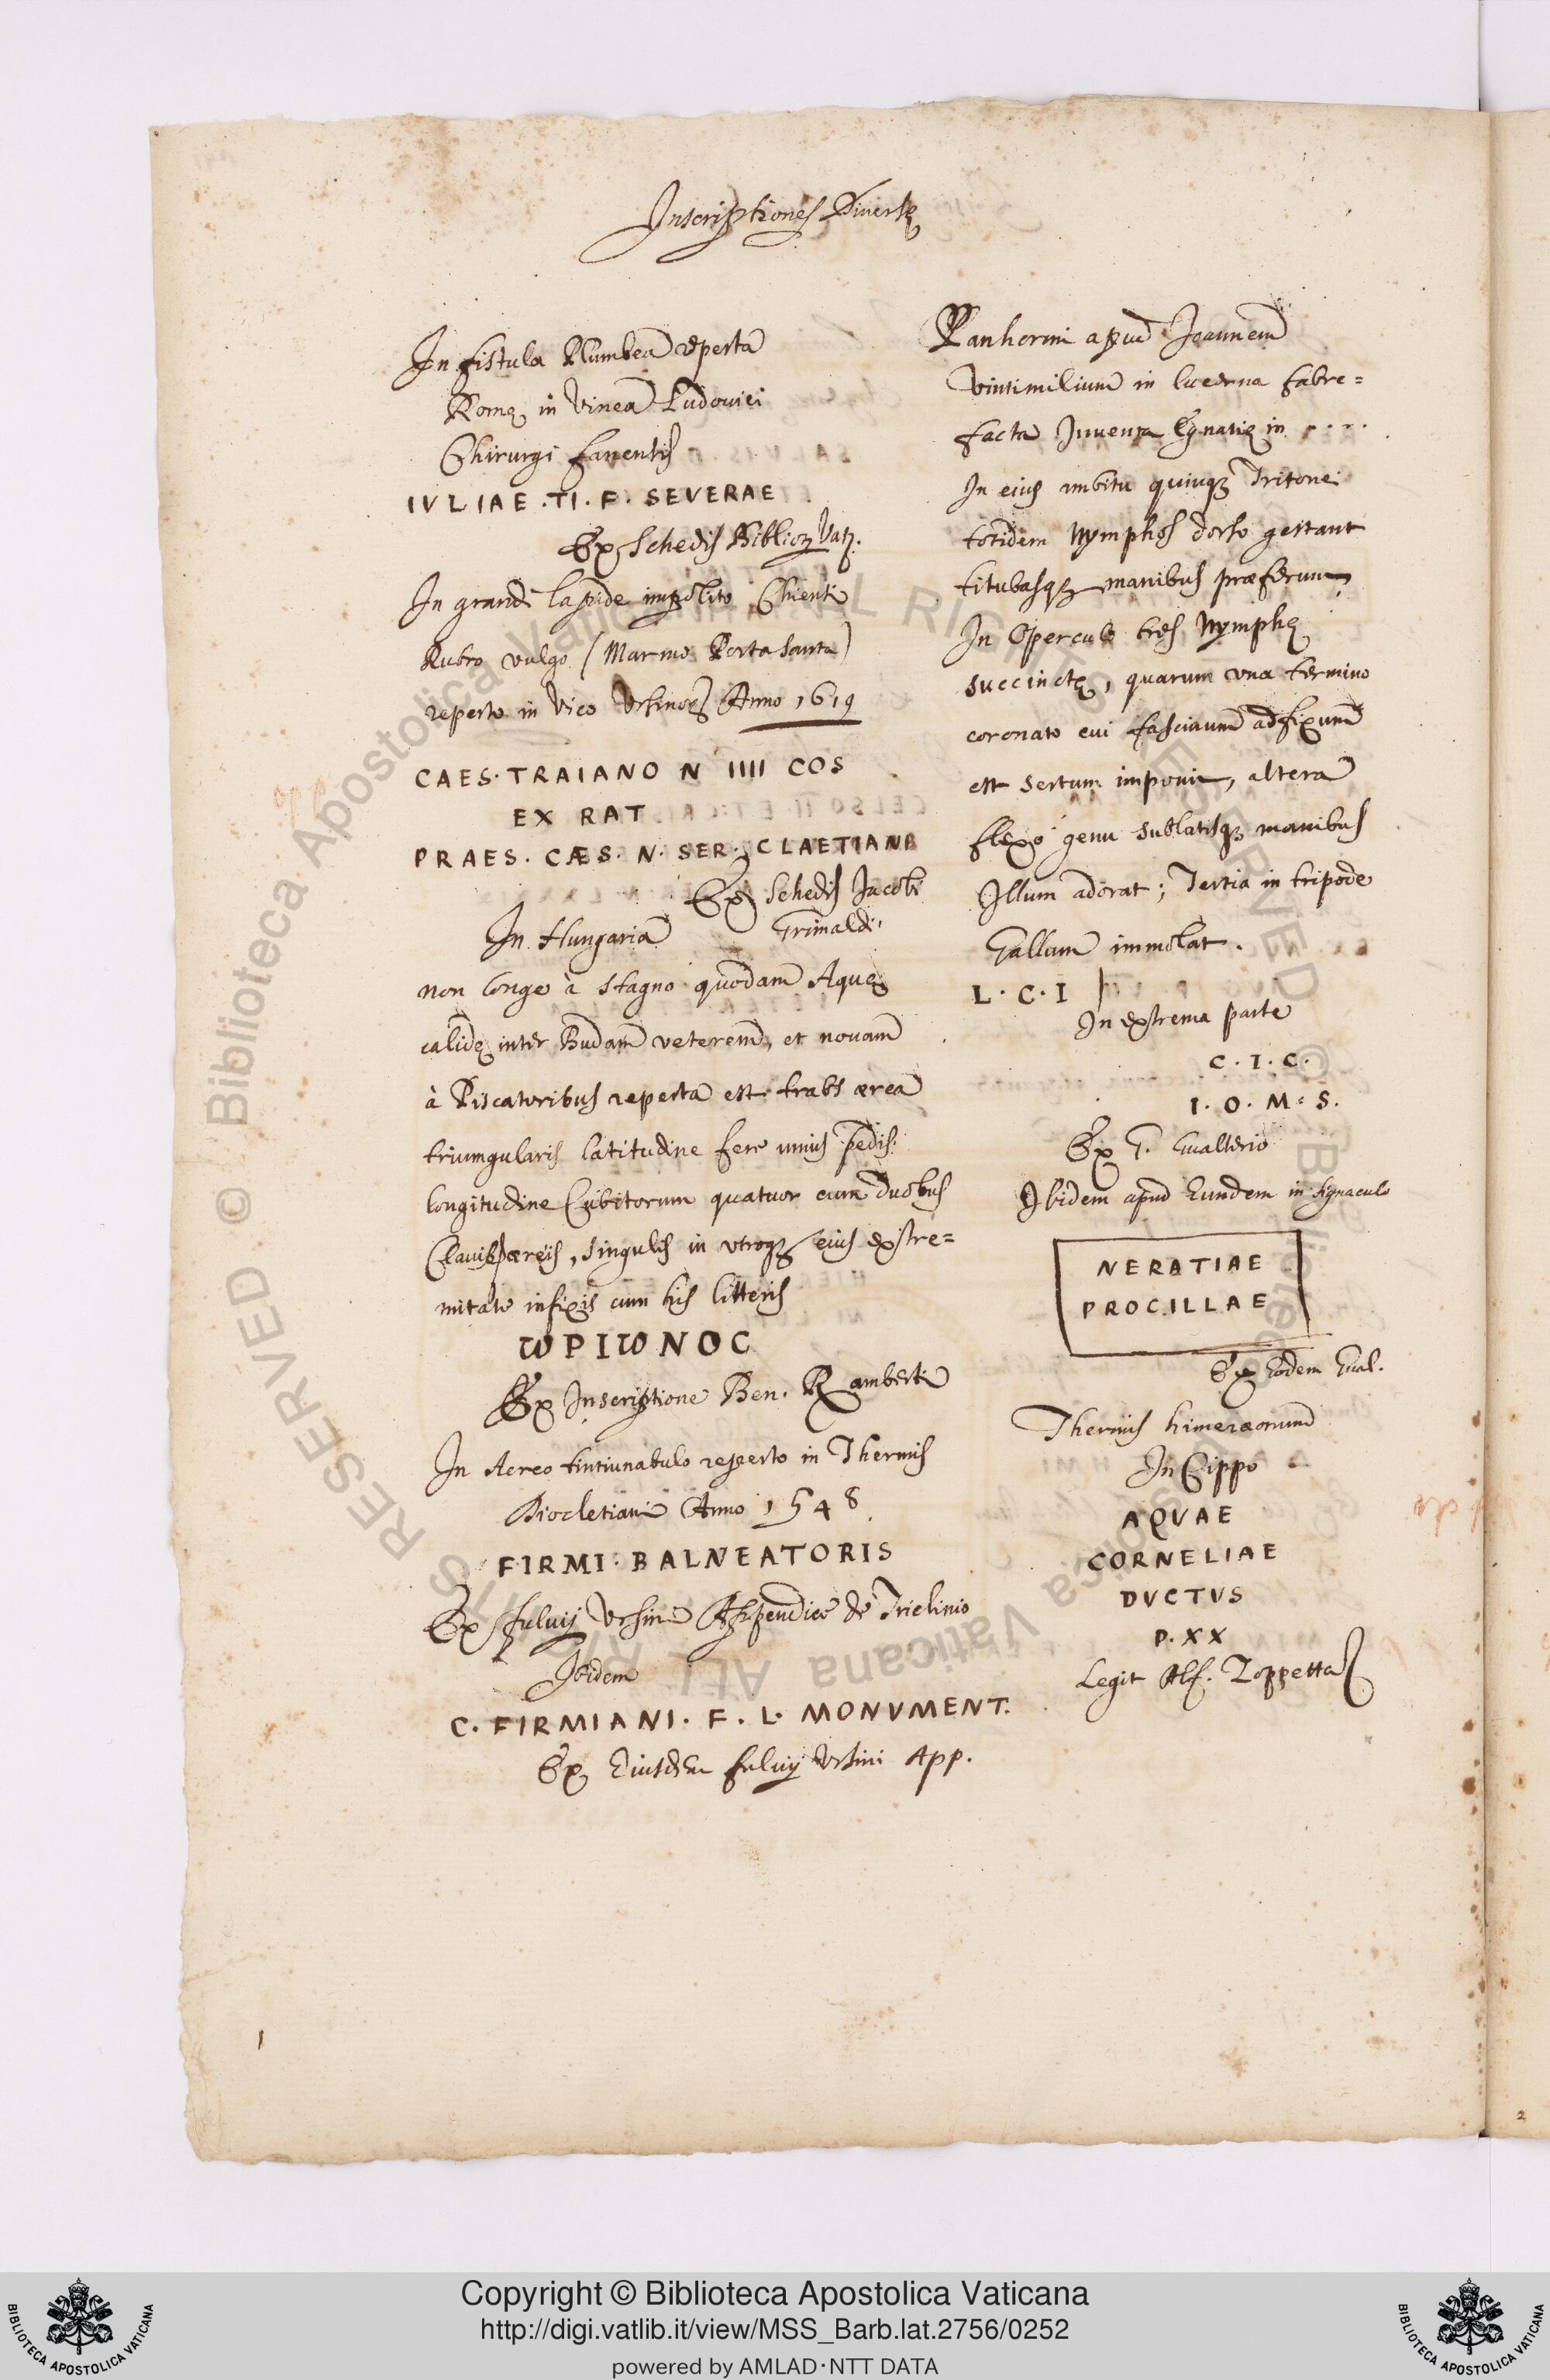 Inscriptiones Diuersę
In fistula Plumbea reperta
Romę in Vinea Ludouici
Chirurgi fauentis
IVLIAE . TI . F . SEVERAE
Ex Schedis Biblioz Vatz.
In grandi lapide impolito Chienti
Rubro vulgo (Marmo Porta Santa)
reperto in Vico Vrsinorz Anno 1619
CAES . TRAIANO N IIII COS
EX RAT
PRAES . CÆS . N . SER . CLAETIANB
Ex Schedis Jacobi
Grimaldi
In Hungaria
non longe à stagno quodam Aquę
calidę inter Budam veterem, et nouam
à Piscatoribus reperta est trabs ærea
triumgularis latitudine fere unius pedis
longitudine Cubitorum quatuor cum duobus
Clauibs æreis, singulis in vtroqz eius extre=
mitate infixis cum his litteris
ѠPIѠNOC
Ex Inscriptione Ben. Ramberti
In Aereo tintinabulo reperto in Thermis
Diocletiani Anno 1548
FIRMI . BALNEATORIS
Ex fuluij Vrsini Appendice de Triclinio
Ibidem
C . FIRMIANI . F . L . MONVMENT.
Ex Eiusdem fuluij Vrsini App.
Panhormi apud Joannem
Vintimilium in lucerna fabre=
facta Inuenta Egnatię in . . . .
In eius ambitu quinqz Tritone
totidem Nymphas dorso gestant
titubasqz manibus præferunt,
In Operculo tres Nymphę
succinctę, quarum vna termino
coronato cui fasciaum adfixum
est sertum imponit, altera
flexo genu sublatisqz manibus
Illum adorat; Tertia in tripode
Gallum immolat.
L . C . I
In extrema parte
C . I . C .
I . O . M . S .
Ex G. Gualterio
Ibidem apud Eundem in signaculo
NERATIAE
PROCILLAE
Ex Eodem Gual.
Thermis himeræorum
In Cippo
AQVAE
CORNELIAE
DVCTVS
P . XX
Legit Alf. Zoppetta
1
2
Copyright © Biblioteca Apostolica Vaticana
http://digi.vatlib.it/view/MSS_Barb.lat.2756/0252
powered by AMLAD·NTT DATA
BIBLIOTECA APOSTOLICA VATICANA
BIBLIOTECA APOSTOLICA VATICANA